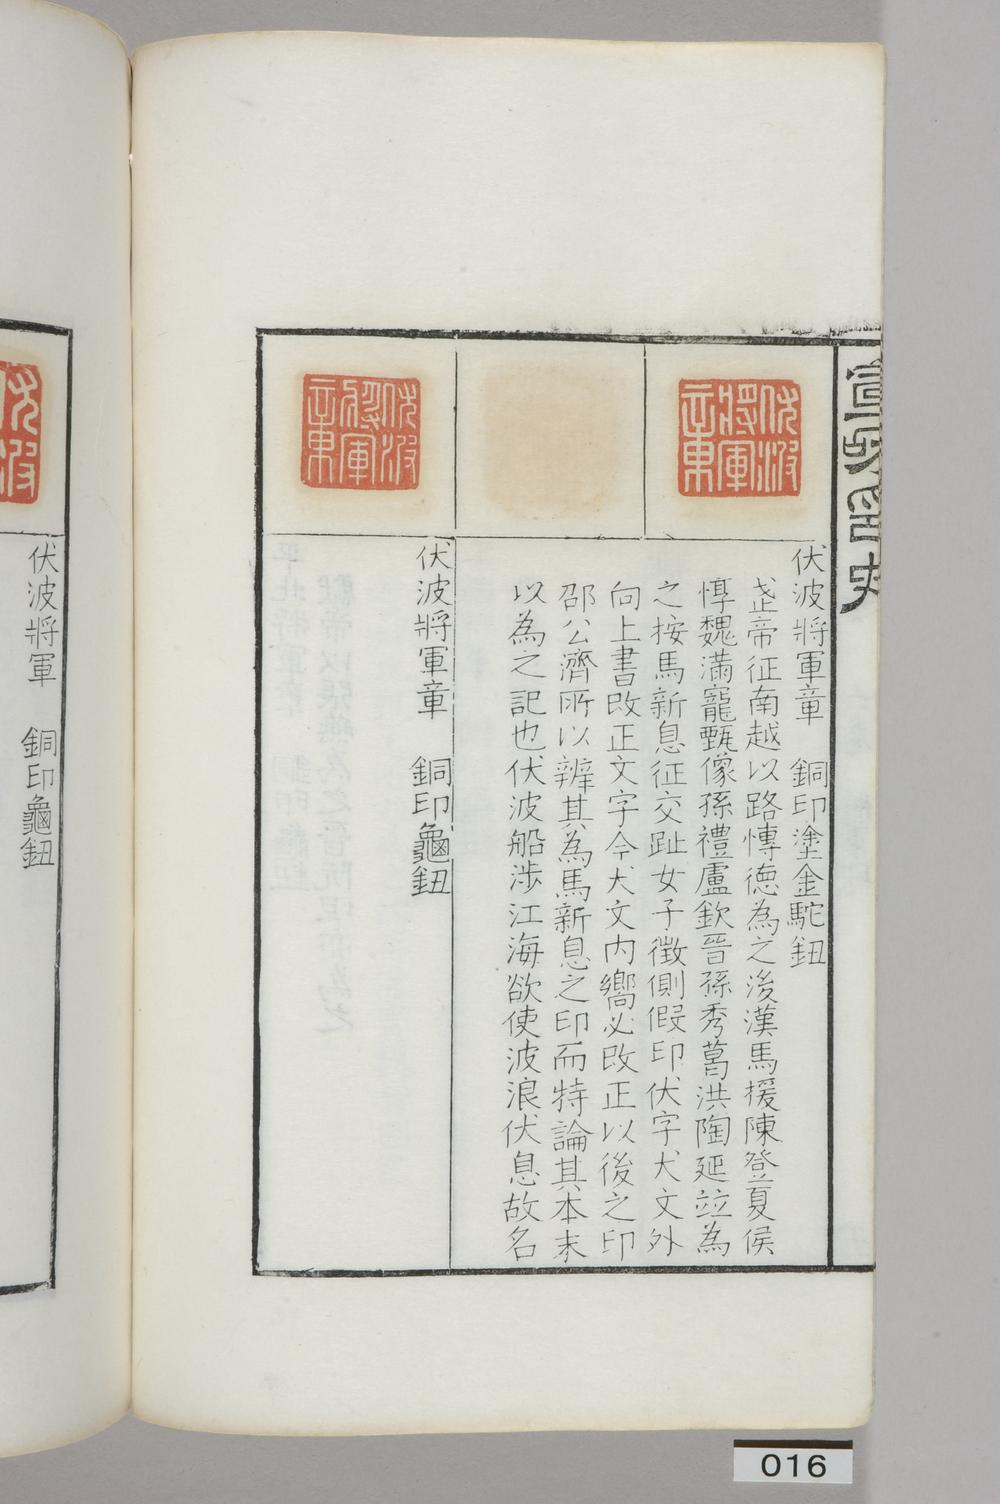 宣和印史
伏波將軍章
伏波將軍章　銅印塗金駝鈕
武帝征南越以路愽德為之後漢馬援陳登夏侯
惇魏滿寵甄像孫禮盧欽晉孫秀葛洪陶延竝為
之按馬新息征交趾女子徵側假印伏字犬文外
向上書改正文字今犬文內嚮必改正以後之印
邵公濟所以辨其為馬新息之印而特論其本末
以為之記也伏波船涉江海欲使波浪伏息故名
伏波將軍章
伏波將軍章　銅印龜鈕
伏波
伏波將軍　銅印龜鈕
016